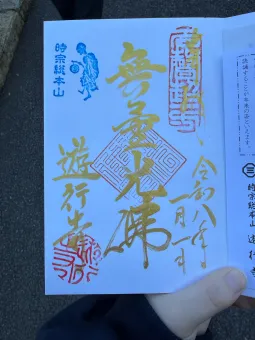 令和八年
一月一日
無量光佛
時宗総本山
遊行寺
時宗総本山 遊行寺